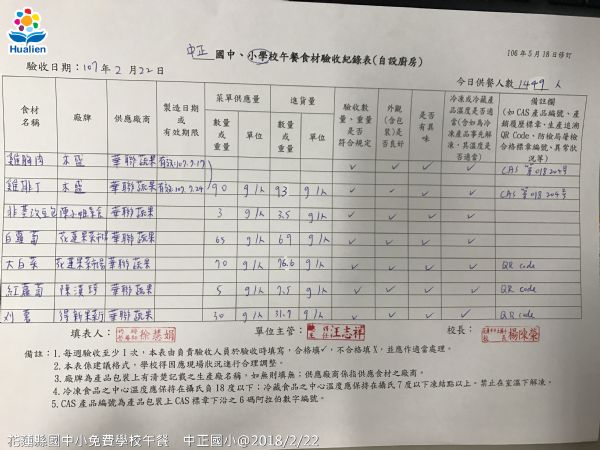 Hualien
106年5月18日修訂
中正 國中、小學校午餐食材驗收紀錄表(自設廚房)
驗收日期：107年2月22日
今日供餐人數1449人
食材名稱 廠牌 供應廠商 製造日期或有效期限 菜單供應量 進貨量 驗收數量、重量是否符合規定 外觀(含包裝)是否良好 是否有異味 冷凍或冷藏產品溫度是否適當(含如為冷凍產品事先解凍，其溫度是否適當) 備註欄(如CAS產品編號、產銷履歷標章、生產追溯QR Code、防檢局藥檢合格標章編號、異常狀況等)
數量或重量 單位 數量或重量 單位
雞胸肉 木盛 華聯蔬果 有效:107.7.17 ✓ ✓ ✓ ✓ CAS 第018204號
雞胸丁 木盛 華聯蔬果 有效:107.7.24 90 g/人 93 g/人 ✓ ✓ ✓ ✓ CAS 第018204號
華聯蔬果 3 g/人 3.5 g/人 ✓ ✓ ✓ ✓
白蘿蔔 花蓮果菜市場 華聯蔬果 65 g/人 69 g/人 ✓ ✓ ✓ ✓
大白菜 花蓮果菜市場 華聯蔬果 70 g/人 76.6 g/人 ✓ ✓ ✓ ✓ QR code
紅蘿蔔 陳漢 華聯蔬果 5 g/人 7.5 g/人 ✓ ✓ ✓ ✓ QR code
刈薯 華聯蔬果 30 g/人 31.7 g/人 ✓ ✓ ✓ ✓ QR code
填表人： 徐慧娟 單位主管： 汪志祥 校長： 楊陳榮
備註：1.每週驗收至少1次，本表由負責驗收人員於驗收時填寫，合格填✓，不合格填X，並應作適當處理。
2.本表係建議格式，學校得因應現場狀況進行合理調整。
3.廠牌為產品包裝上有清楚記載之生產廠名稱，如無則填無；供應廠商係指供應食材之廠商。
4.冷凍食品之中心溫度應保持在攝氏負18度以下；冷藏食品之中心溫度應保持在攝氏7度以下凍結點以上，禁止在室溫下解凍。
5.CAS產品編號為產品包裝上CAS標章下沿之6碼阿拉伯數字編號。
花蓮縣國中小免費學校午餐 中正國小@2018/2/22